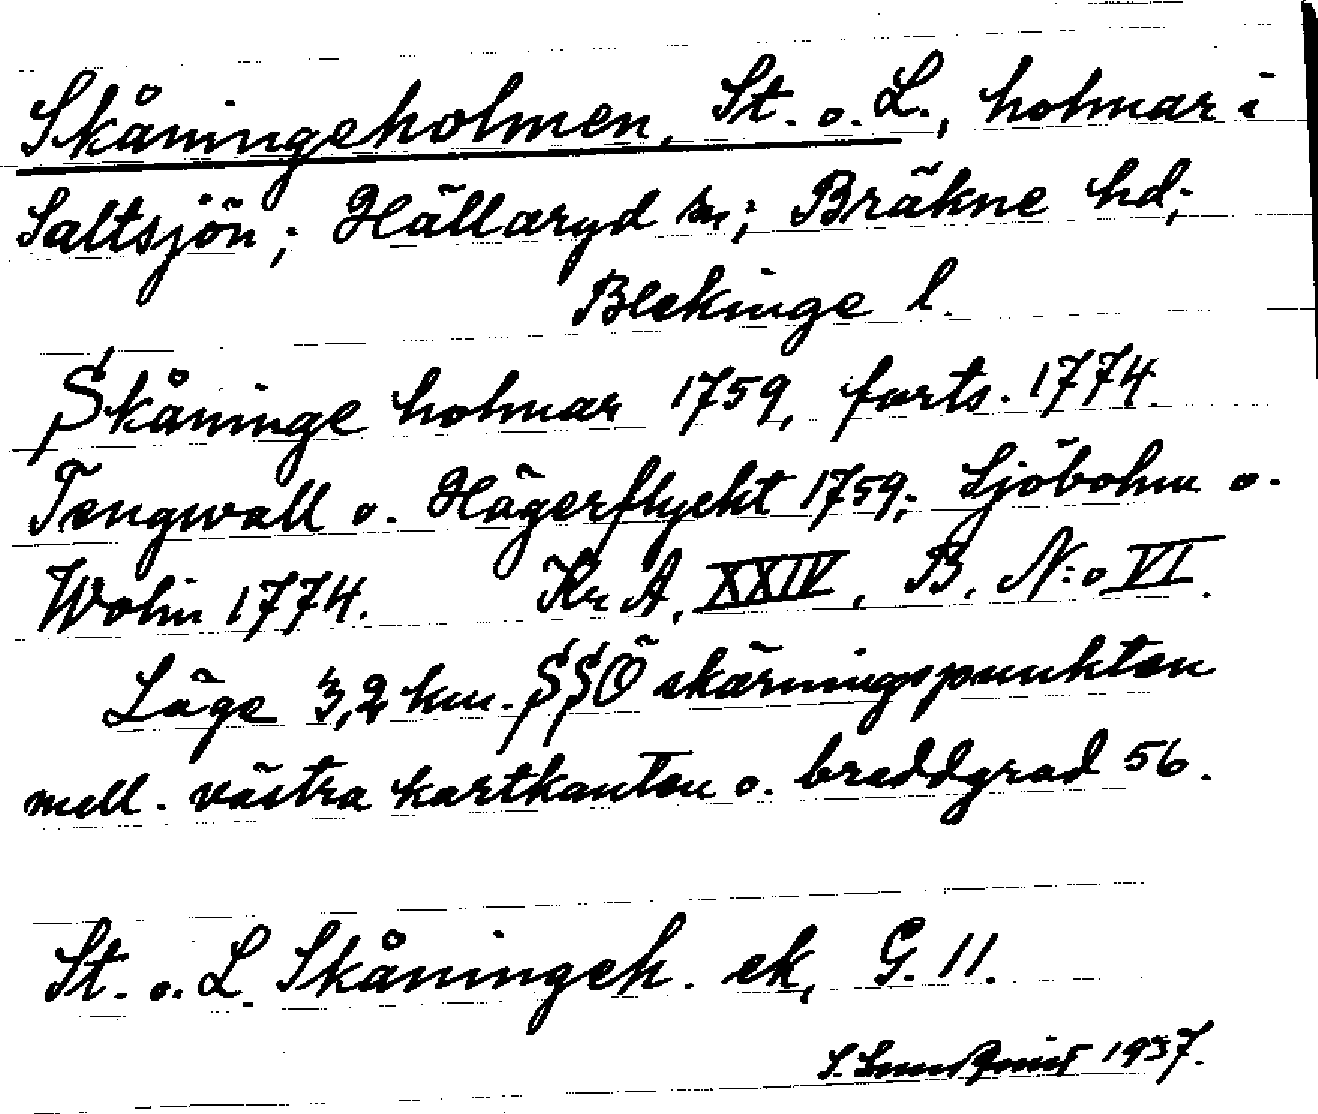 Skåningeholmen, St. o. L., holmar i
Saltsjön; Hällaryd sn; Bräkne hd;
Blekinge l.
Skåninge holmar 1759, forts. 1774.
Tengwall o. Hägerflycht 1759; Sjöbohm o.
Wohin 1774. Kr A, XXIV, B. N:o VI.
Läge 3,2 km. SSÖ skärningspunkten
mell. västra kartkanten o. breddgrad 56.
St. o. L. Skåningeh. ek, G. 11.
S. 1937.